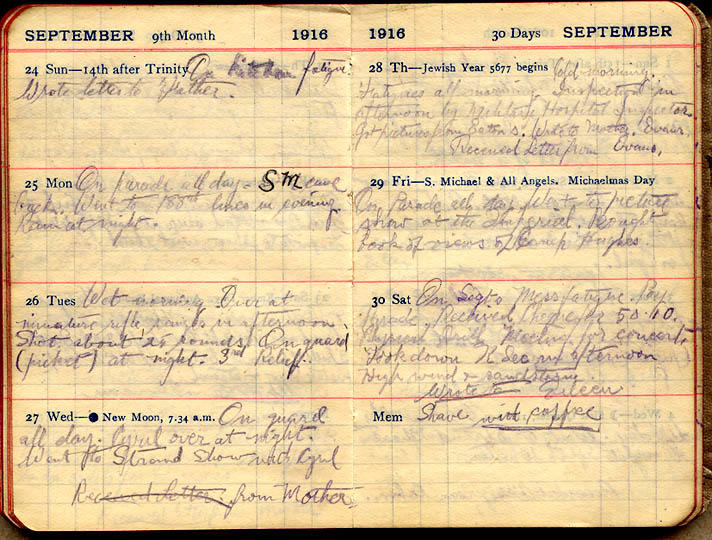 SEPTEMBER 9th Month 1916
24 Sun—14th after Trinity On Kitchen fatigue.
Wrote letter to Father.
25 Mon On parade all day - SM came
back. Went to lines in evening
Rain at night.
26 Tues Wet morning. Over at
miniature rifle ranges in afternoon
Shot about 25 rounds. On guard
(picket) at night. 3rd Relief.
27 Wed—● New Moon, 7.34 a.m. On guard
all day. Cyril over at night.
Went to Strand Show with Cyril
Received Letter from Mother
1916 30 Days SEPTEMBER
28 Th—Jewish Year 5677 begins Cold morning.
Fatigues all morning Inspection in
afternoon by Hospital Inspector.
Got pictures from Eaton's. Write to Mother, Evans,
Received Letter from Evans,
29 Fri—S. Michael & All Angels. Michaelmas Day
On Parade all day. Went to picture
show at the Imperial. Bought
book of views of Camp Hughes.
30 Sat On Sergts Mess fatigue. Pay
Parade Received cheque for 50.10.
Physical Drill. Meeting for concert.
Took down in afternoon
High wind & sandstorm
Wrote to Eileen
Mem Shave with coffee